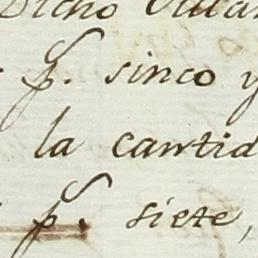 Dicho
p. sinco y
la cantid
p. siete,